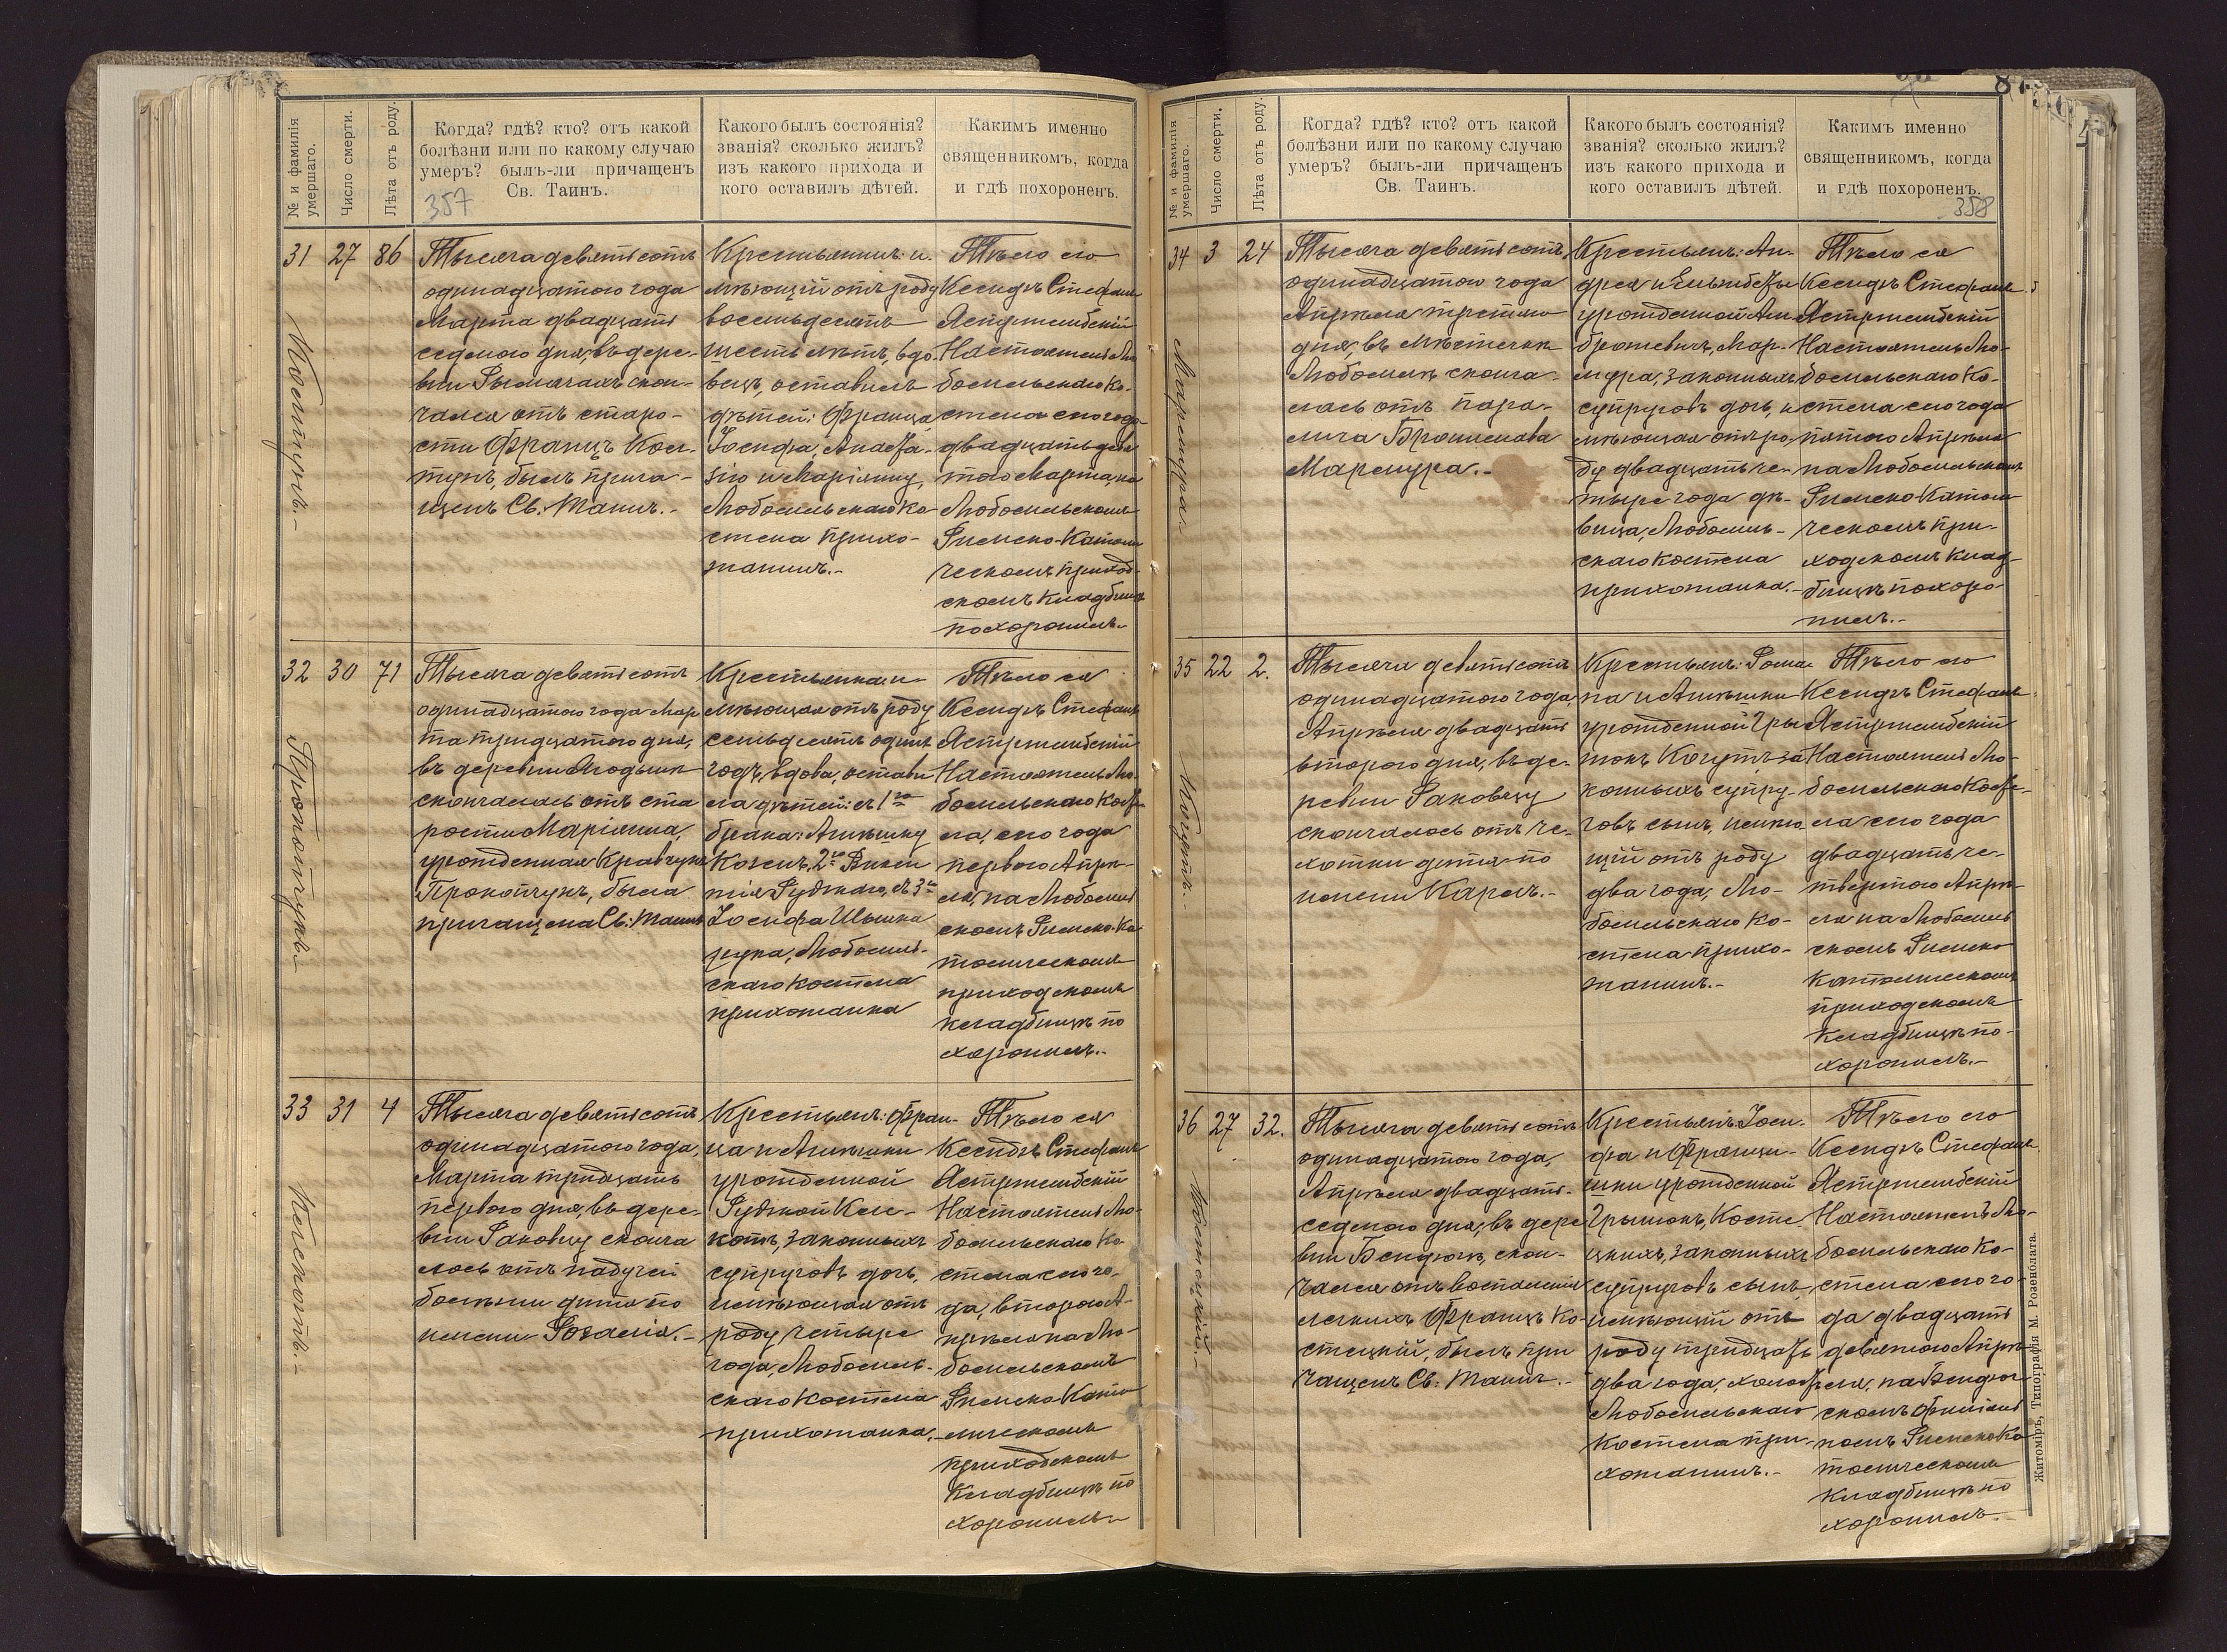 № и фамилія умершаго.
Число смерти.
Лѣта отъ роду.
Когда? гдѣ? кто? отъ какой
болѣзни или по какому случаю
умеръ? былъ-ли причащенъ
Св. Таинъ.
357
Какого былъ состоянія?
званія? сколько жилъ?
изъ какого прихода и
кого оставилъ дѣтей.
Какимъ именно
священникомъ, когда
и гдѣ похороненъ.
31 27 86
Тысяча девятьсотъ
одинадцатого года
Марта двадцать
седьмого дня, въ дере-
вни скон-
чался отъ старо-
сти Францъ
былъ прича-
щенъ Св. Таинъ.-
Крестьянинъ: и-
мѣющій отъ роду
восемьдесятъ
шесть лѣтъ, вдо-
вецъ, оставилъ
дѣтей: Франца,
Іосифа,
и Маріянну,
Любомльскаго ко-
стела прихо-
жанинъ.-
Тѣло его
Ксендзъ Стефанъ
Ястржембскій
Настоятель Лю-
бомльскаго Ко-
стела сего года
двадцать девя-
таго Марта, на
Любомльскомъ
Римско-Католи
ческомъ приход-
скомъ кладбищѣ
похоронилъ.-
32 30 71
Прокопчукъ.-
Тысяча девятьсотъ
одинадцатого года Мар
та тридцатого дня,
въ деревни
скончалась отъ ста
рости Маріянна,
урожденная Кравчукъ
Прокопчукъ, была
причащена Св. Таинъ
Крестьянка и-
мѣющая отъ роду
семьдесятъ одинъ
годъ, вдова, остави
ла дѣтей: съ 1го
брака: Агнѣшку
Іосифа
Любомль-
скаго костела
прихожанка
Тѣло ея
Ксендзъ Стефанъ
Ястржембскій
Настоятель Лю-
бомльскаго Косте-
ла, сего года
перваго Апрѣ-
ля, на Любомль
скомъ Римско-Ка-
толическомъ
приходскомъ
кладбищѣ по
хоронилъ.-
33 31 4
Тысяча девятьсотъ
одинадцатого года,
Марта тридцать
перваго дня, въ дере-
вни Раковцу сконча
лось отъ падучей
болѣзни дитя по
имени Розалія.-
Крестьянъ: Фран-
ца и Агнѣшки
урожденной
законныхъ
супруговъ дочь,
имѣющая отъ
роду четыре
года, Любомль-
скаго костела
прихожанка.-
Тѣло ея
Ксендзъ Стефанъ
Ястржембскій
Настоятель Лю-
бомльскаго Ко-
стела сего го-
да, второго А-
прѣля на Лю-
бомльскомъ
Римско-Като
лическомъ
приходскомъ
кладбищѣ по
хоронилъ.-
№ и фамилія умершаго.
Число смерти.
Лѣта отъ роду.
Когда? гдѣ? кто? отъ какой
болѣзни или по какому случаю
умеръ? былъ-ли причащенъ
Св. Таинъ.
Какого былъ состоянія?
званія? сколько жилъ?
изъ какого прихода и
кого оставилъ дѣтей.
Какимъ именно
священникомъ, когда
и гдѣ похороненъ.
358
34 3 24
Тысяча девятьсотъ
одинадцатого года
Апрѣля третьяго
дня, въ мѣстечкѣ
Любомлѣ сконча-
лась отъ пара-
лича Бронислава
Крестьянъ: Ан-
дрея и Ельжбеты
урожденной
законныхъ
супруговъ дочь, и
мѣющая отъ ро-
ду двадцать че-
тыре года дѣ-
вица, Любомль-
скаго костела
прихожанка.-
Тѣло ея
Ксендзъ Стефанъ
Ястржембскій
Настоятель Лю-
бомльскаго Ко-
стела сего года
пятаго Апрѣля
на Любомльскомъ
Римско Католи
ческомъ при-
ходскомъ клад-
бищѣ похоро-
нилъ.-
35 22 2.
Когутъ.-
Тысяча девятьсотъ
одинадцатого года,
Апрѣля двадцать
второго дня, въ де-
ревни Раковцу
скончалось отъ че-
хотки дитя по
имени Кароль.-
Крестьянъ: Рома-
на и Агнѣшки
урожденной Гры
мокъ Когутъ за
конныхъ супру-
говъ сынъ, имѣю
щій отъ роду
два года, Лю-
бомльскаго Ко-
стела прихо-
жанинъ.-
Тѣло его
Ксендзъ Стефанъ
Ястржембскій
Настоятель Лю-
бомльскаго Косте-
ла сего года
двадцать че-
твертого Апрѣ-
ля на Любомль
скомъ Римско
Католическомъ
приходскомъ
кладбищѣ по-
хоронилъ.-
36 27 32.
Костецкій.-
Тысяча девятьсотъ
одинадцатого года,
Апрѣля двадцать-
седьмого дня, въ дере
вни скон-
чался отъ воспаленія
легкихъ Францъ Ко-
стецкій, былъ при
чащенъ Св. Таинъ.-
Крестьянъ: Іоси-
фа и Францы-
шки урожденной
Грымокъ, Косте
цкихъ, законныхъ
супруговъ сынъ,
имѣющій отъ
роду тридцать
два года, холостъ
Любомльскаго
Костела при-
хожанинъ.-
Тѣло его
Ксендзъ Стефанъ
Ястржембскій
Настоятель Лю-
бомльскаго Ко-
стела сего го-
да двадцать
девятого Апрѣ-
ля, на
скомъ филіаль
номъ Римско Ка
толическомъ
кладбищѣ по
хоронилъ.-
Житоміръ, Типографія М. Розенблата.